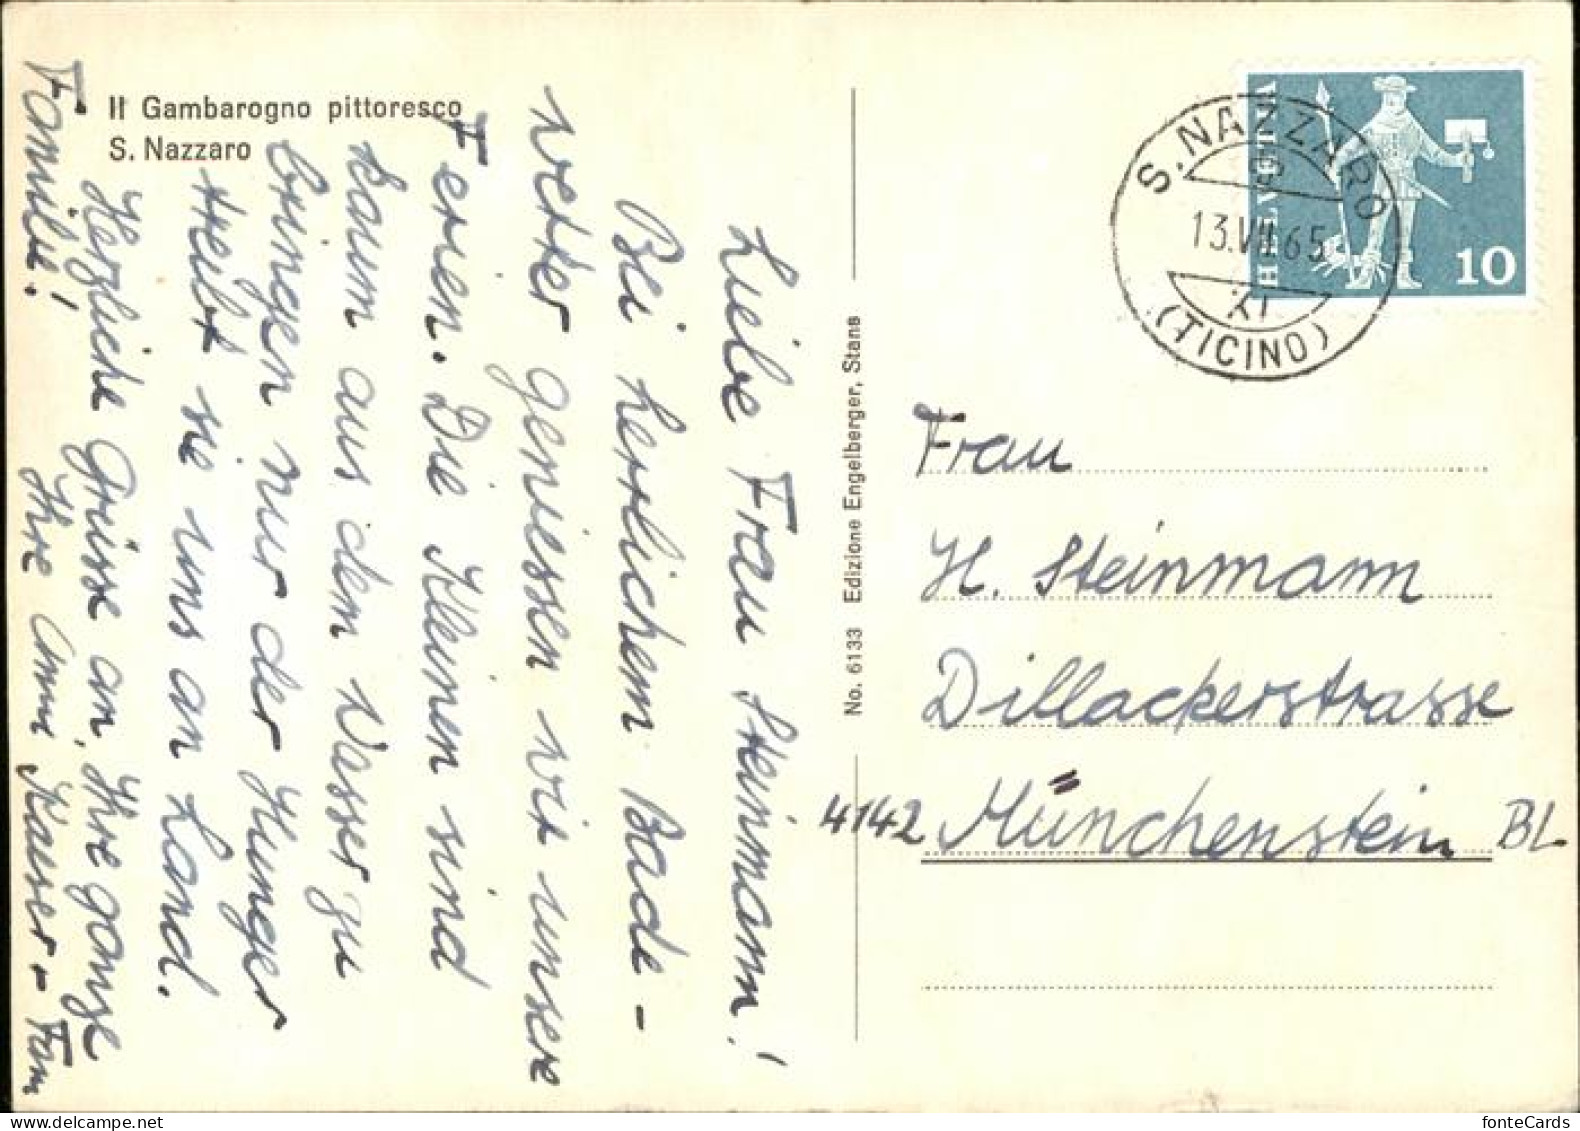 Il Gambarogno pittoresco
S. Nazzaro
Liebe Frau Steinmann!
Bei herrlichem Bade-
wetter geniessen wir unsere
Ferien. Die Kleinen sind
kaum aus dem Wasser zu
bringen nur der Hunger
treibt sie uns an Land.
Herzliche Grüsse an Ihre ganze
Familie!
Ihre Kaeser - Fam
No. 6133 Edizione Engelberger, Stans
HELVETIA
10
S. NAZZARO
13.VII.65
(TICINO)
Frau
H. Steinmann
Dillackerstrasse
4142 Münchenstein BL
fonteCards